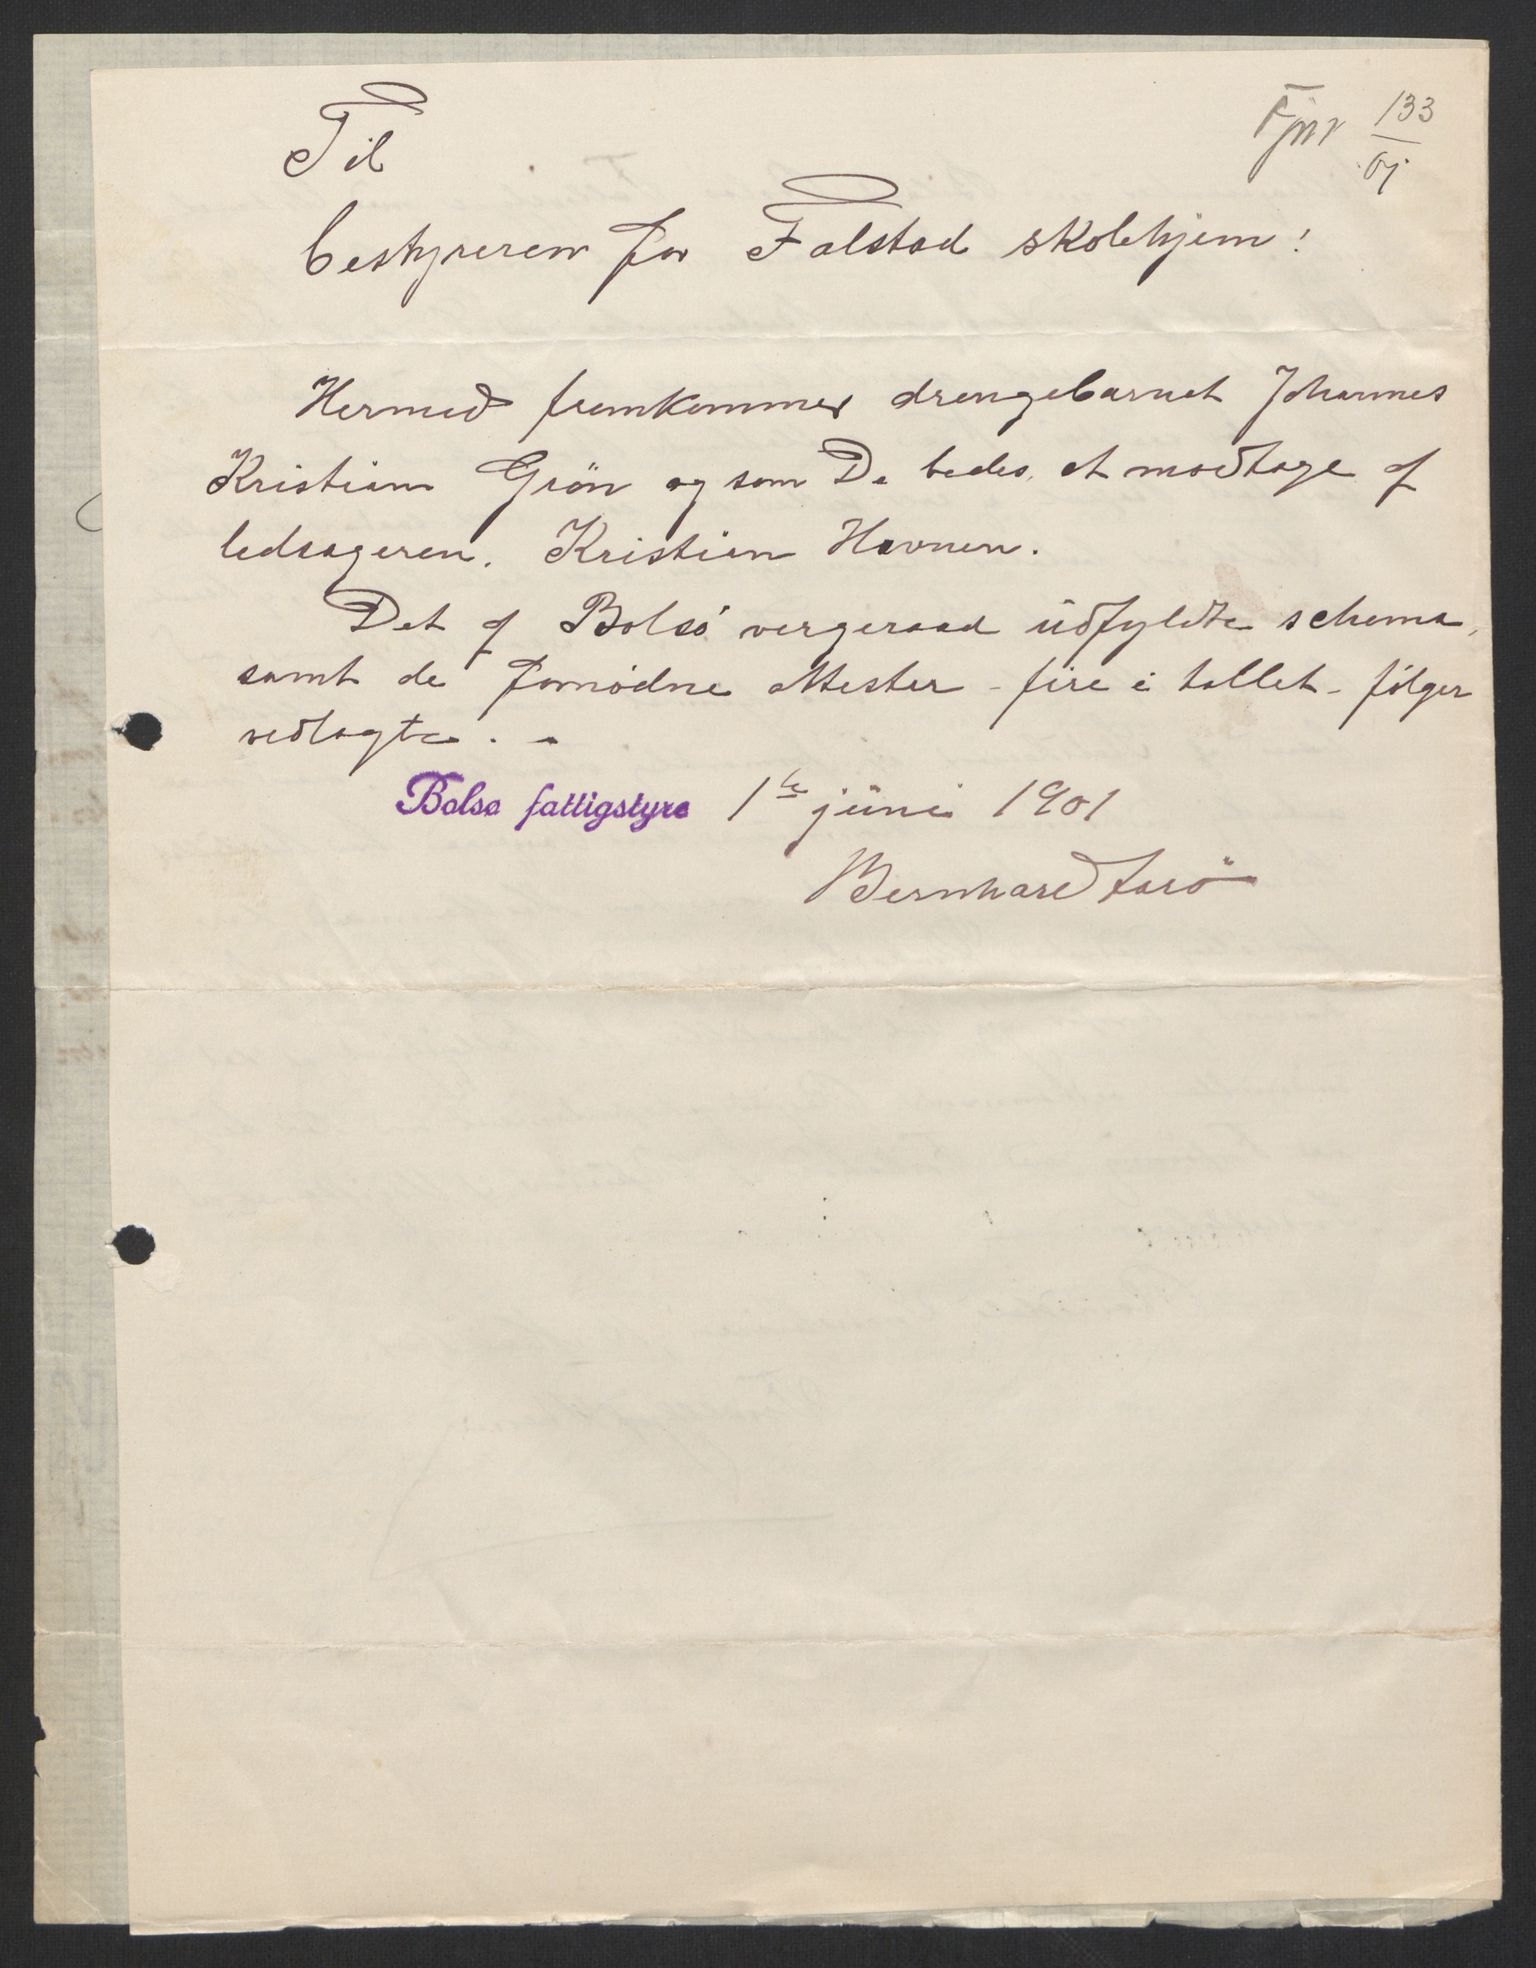 Fjnr 133/01
Til
bestyreren for Falstad skolehjem!
Hermed fremkommer drengebarnet Johannes
Kristian Grön og som De bedes at modtage af
ledsageren. Kristian Havnen.
Det af Bolsö vergeraad udfyldte schema,
samt de fornödne attester - fire i tallet - fölger
vedlagte. -
Bolsø fattigstyre 1ste juni 1901
Bernhard